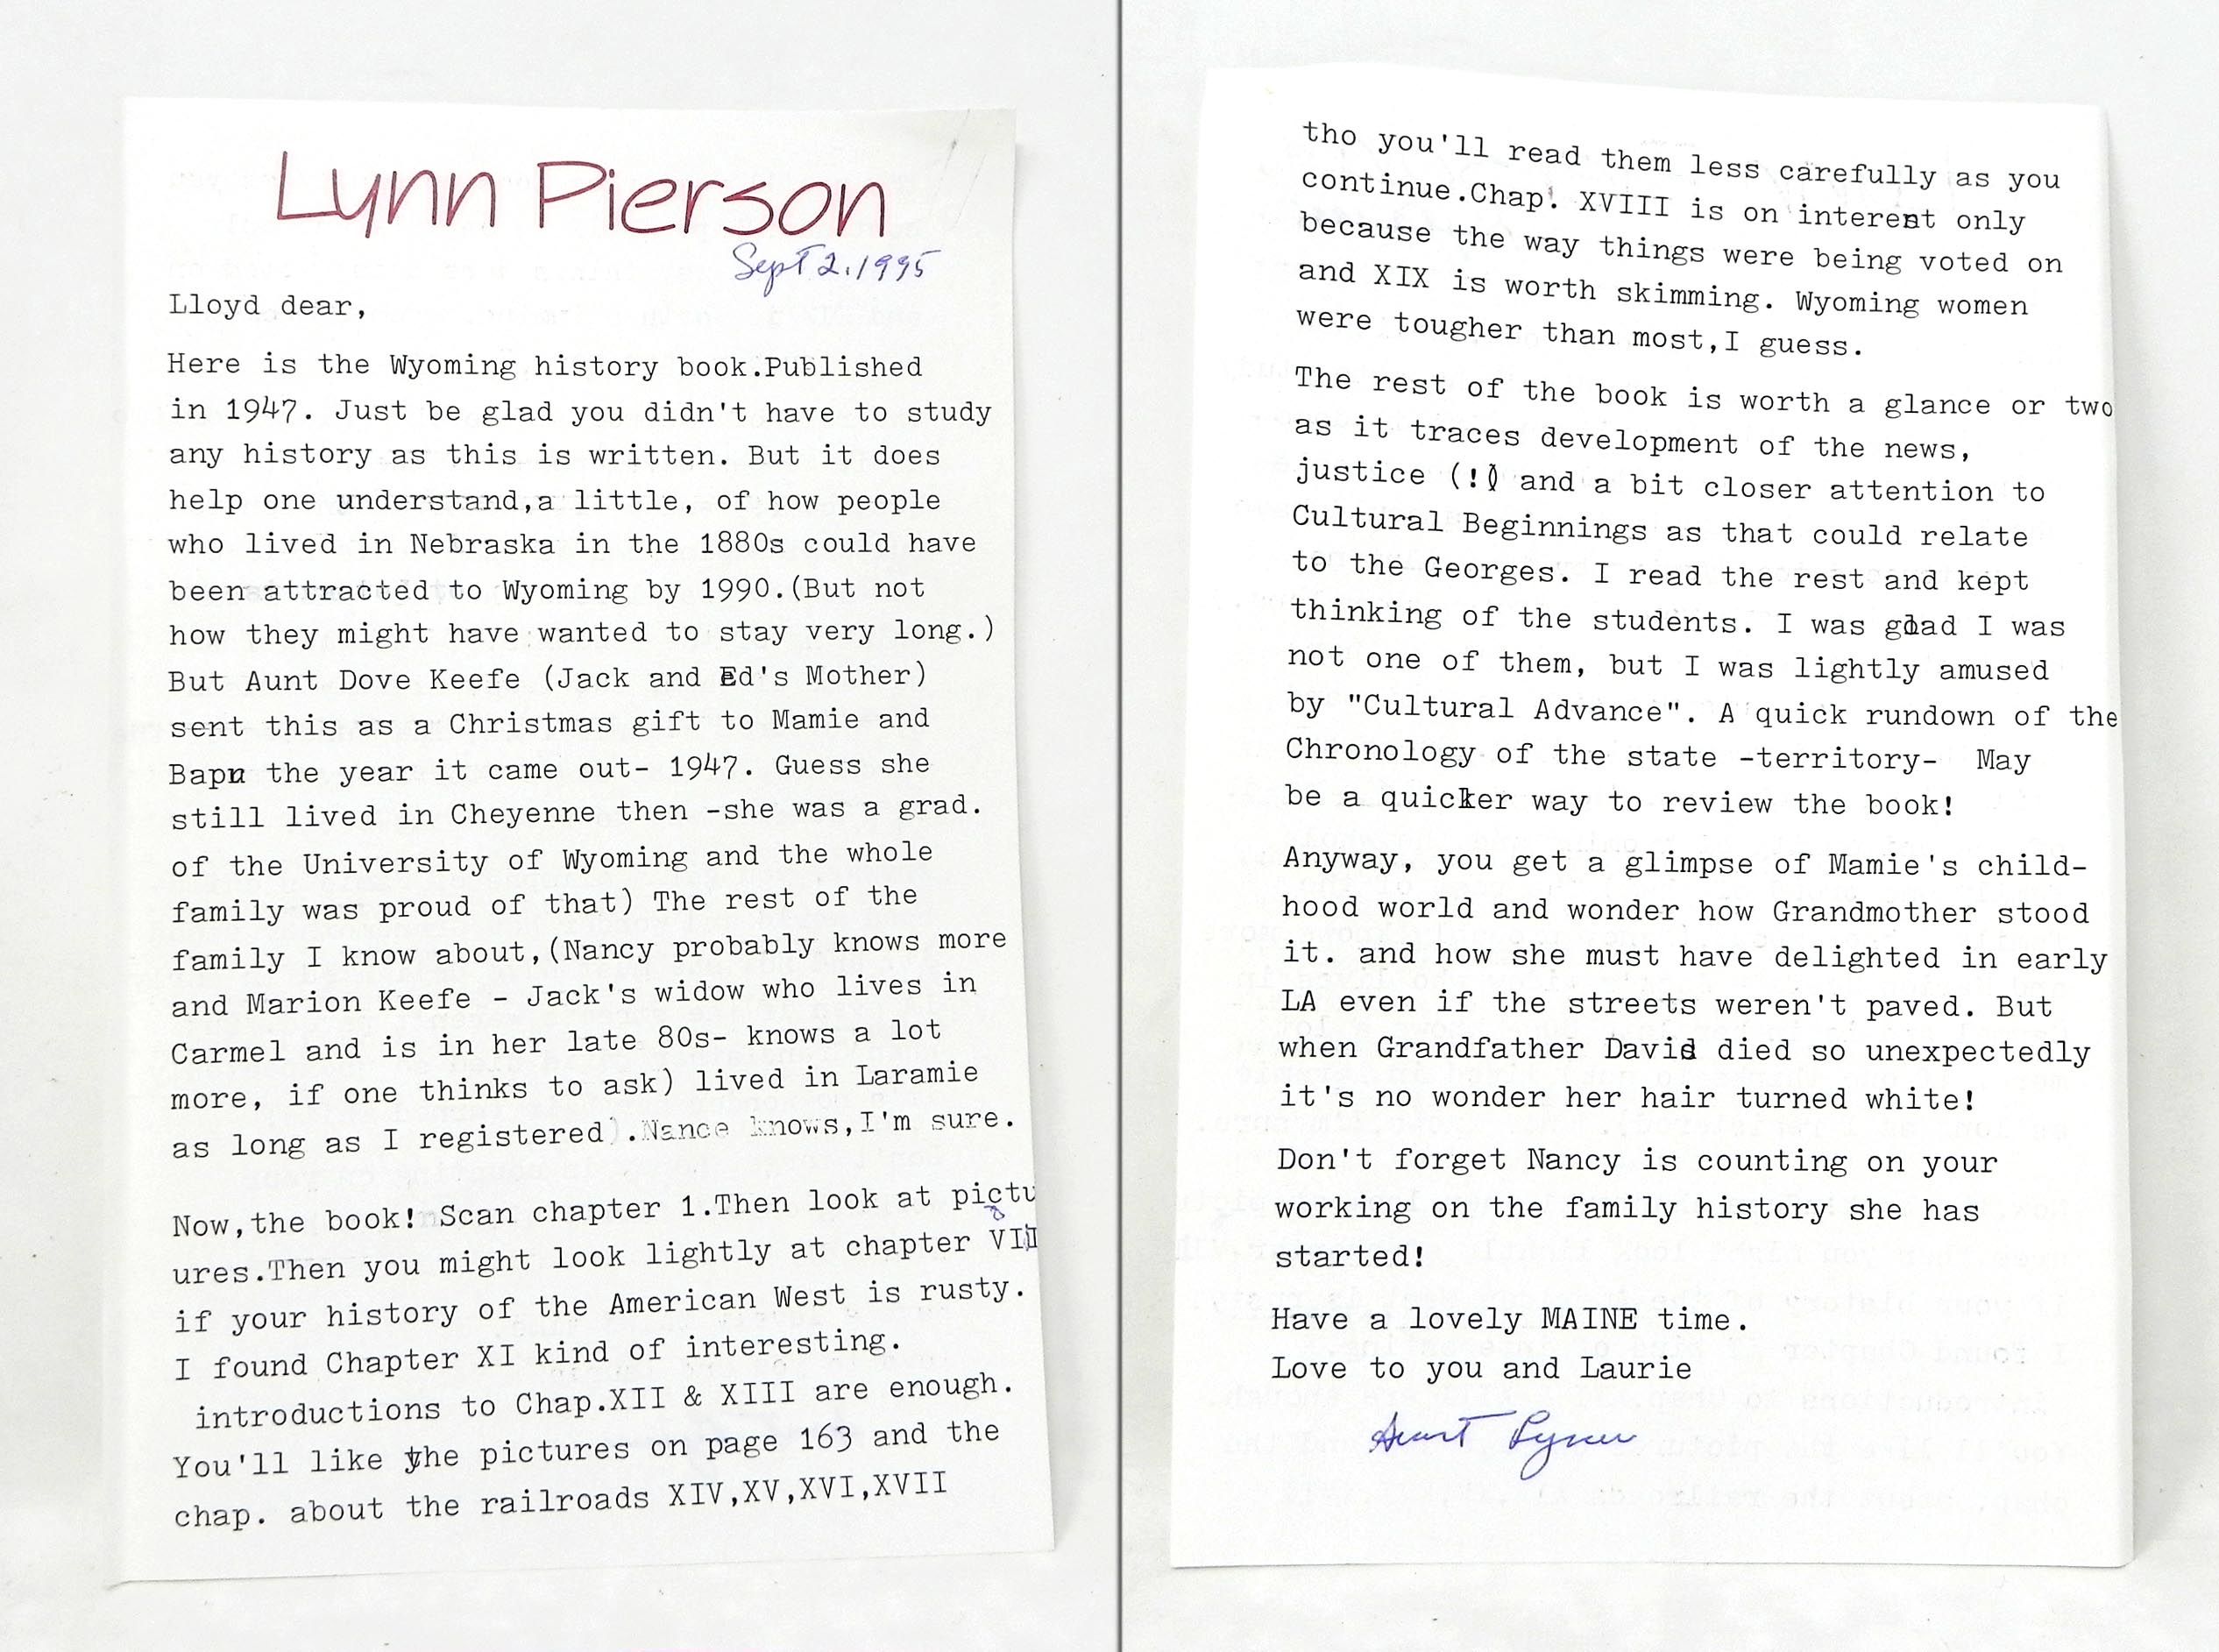 Lynn Pierson
Sept 2, 1995
Lloyd dear,
Here is the Wyoming history book.Published
in 1947. Just be glad you didn't have to study
any history as this is written. But it does
help one understand,a little, of how people
who lived in Nebraska in the 1880s could have
been attracted to Wyoming by 1990.(But not
how they might have wanted to stay very long.)
But Aunt Dove Keefe (Jack and Ed's Mother)
sent this as a Christmas gift to Mamie and
Bapu the year it came out- 1947. Guess she
still lived in Cheyenne then -she was a grad.
of the University of Wyoming and the whole
family was proud of that) The rest of the
family I know about,(Nancy probably knows more
and Marion Keefe - Jack's widow who lives in
Carmel and is in her late 80s- knows a lot
more, if one thinks to ask) lived in Laramie
as long as I registered).Nance knows,I'm sure.
Now,the book! Scan chapter 1.Then look at pictu
ures.Then you might look lightly at chapter VII
if your history of the American West is rusty.
I found Chapter XI kind of interesting.
introductions to Chap.XII & XIII are enough.
You'll like the pictures on page 163 and the
chap. about the railroads XIV,XV,XVI,XVII
tho you'll read them less carefully as you
continue.Chap. XVIII is on interest only
because the way things were being voted on
and XIX is worth skimming. Wyoming women
were tougher than most,I guess.
The rest of the book is worth a glance or two
as it traces development of the news,
justice (!) and a bit closer attention to
Cultural Beginnings as that could relate
to the Georges. I read the rest and kept
thinking of the students. I was glad I was
not one of them, but I was lightly amused
by "Cultural Advance". A quick rundown of the
Chronology of the state -territory- May
be a quicker way to review the book!
Anyway, you get a glimpse of Mamie's child-
hood world and wonder how Grandmother stood
it. and how she must have delighted in early
LA even if the streets weren't paved. But
when Grandfather David died so unexpectedly
it's no wonder her hair turned white!
Don't forget Nancy is counting on your
working on the family history she has
started!
Have a lovely MAINE time.
Love to you and Laurie
Aunt Lynn